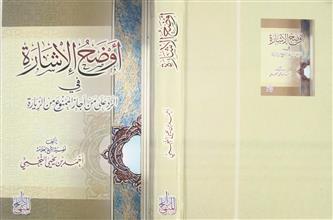 أوضح الإشارة
في
الرد على من أجاز الممنوع من الزيارة
تأليف
أحمد بن يحيى النجمي
المنهاج
أوضح الإشارة
أحمد بن يحيى النجمي
المنهاج
أوضح الإشارة
في